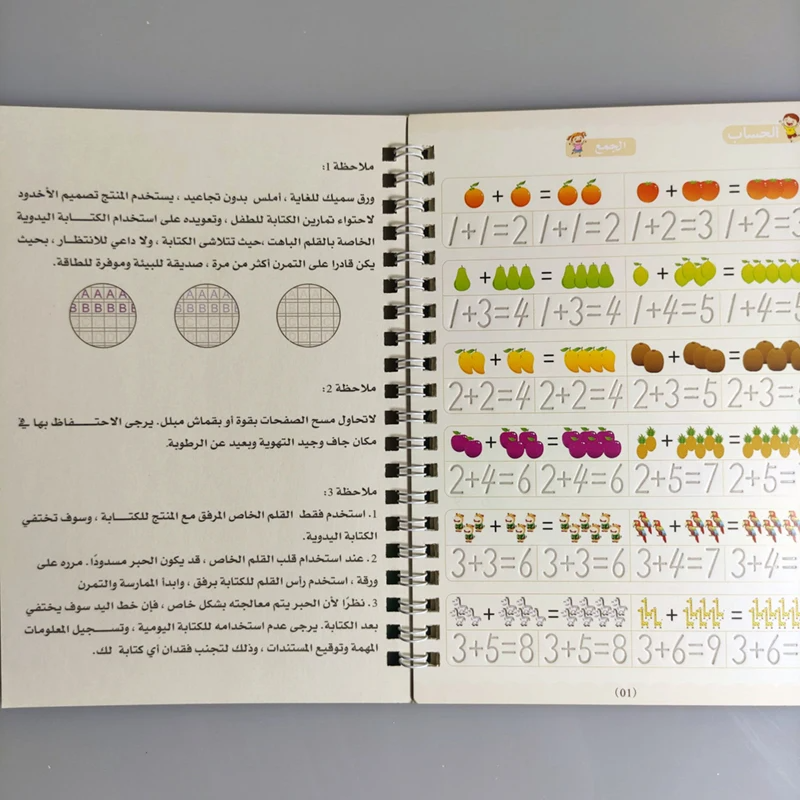 ملاحظة 1:
ورق سميك للغاية ، أملس بدون تجاعيد ، يستخدم المنتج تصميم الأخدود
لاحتواء تمارين الكتابة للطفل ، وتعويده على استخدام الكتابة اليدوية
الخاصة بالقلم الباهت ،حيث تتلاشى الكتابة ، ولا داعي للانتظار ، بحيث
يكن قادرا على التمرن أكثر من مرة ، صديقة للبيئة وموفرة للطاقة.
A A A A
B B B B B
A A A A
B B B B
ملاحظة 2:
لاتحاول مسح الصفحات بقوة أو بقماش مبلل. يرجى الاحتفاظ بها في
مكان جاف وجيد التهوية وبعيد عن الرطوبة.
ملاحظة 3:
1. استخدم فقط القلم الخاص المرفق مع المنتج للكتابة ، وسوف تختفي
الكتابة اليدوية.
2. عند استخدام قلب القلم الخاص ، قد يكون الحبر مسدودًا. مرره على
ورقة ، استخدم رأس القلم للكتابة برفق ، وابدأ الممارسة والتمرن
3. نظرًا لأن الحبر يتم معالجته بشكل خاص ، فإن خط اليد سوف يختفي
بعد الكتابة. يرجى عدم استخدامه للكتابة اليومية ، وتسجيل المعلومات
المهمة وتوقيع المستندات ، وذلك لتجنب فقدان أي كتابة لك.
الحساب
الجمع
+ = + =
1+1=2 1+1=2 1+2=3 1+2=3
+ = + =
1+3=4 1+3=4 1+4=5 1+4=5
+ = + =
2+2=4 2+2=4 2+3=5 2+3=
+ = + =
2+4=6 2+4=6 2+5=7 2+5=
+ = + =
3+3=6 3+3=6 3+4=7 3+4=
+ = + =
3+5=8 3+5=8 3+6=9 3+6=
(01)